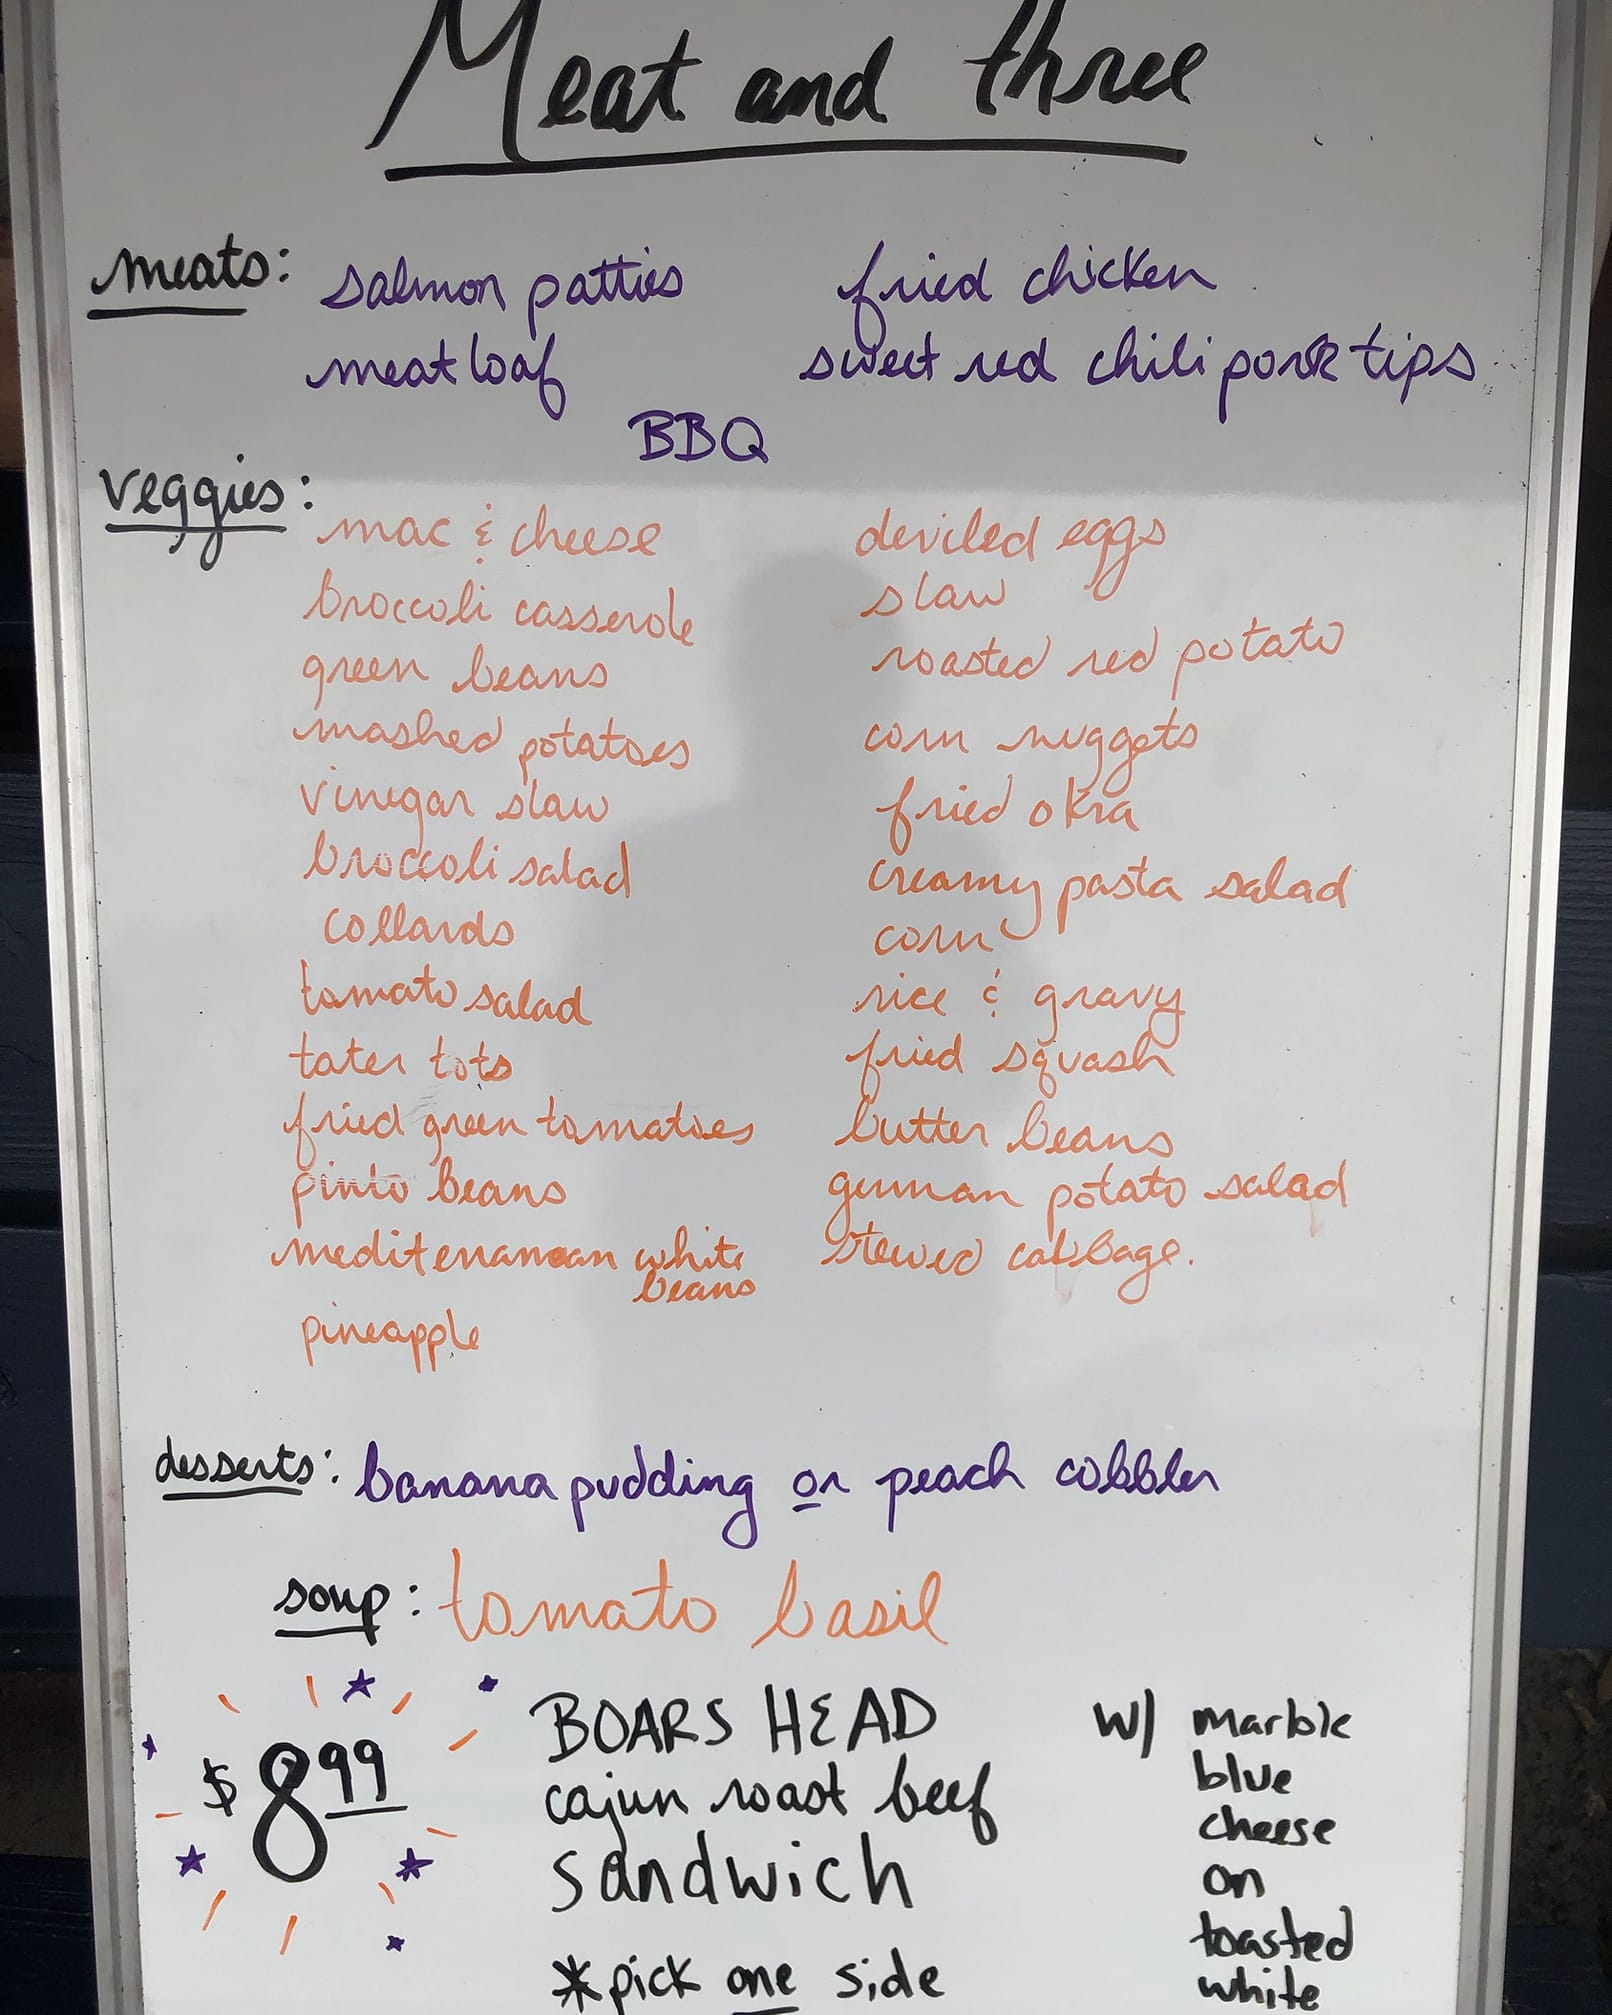 Meat and three
meats: salmon patties fried chicken
meatloaf sweet red chili pork tips
BBQ
veggies:
mac & cheese deviled eggs
broccoli casserole slaw
green beans roasted red potato
mashed potatoes corn nuggets
vinegar slaw fried okra
broccoli salad creamy pasta salad
collards corn
tomato salad rice & gravy
tater tots fried squash
fried green tomatoes butter beans
pinto beans german potato salad
mediterranean white stewed cabbage.
beans
pineapple
desserts: banana pudding or peach cobbler
soup: tomato basil
$8.99
BOARS HEAD
cajun roast beef
sandwich
*pick one side
w/ marble
blue
cheese
on
toasted
white